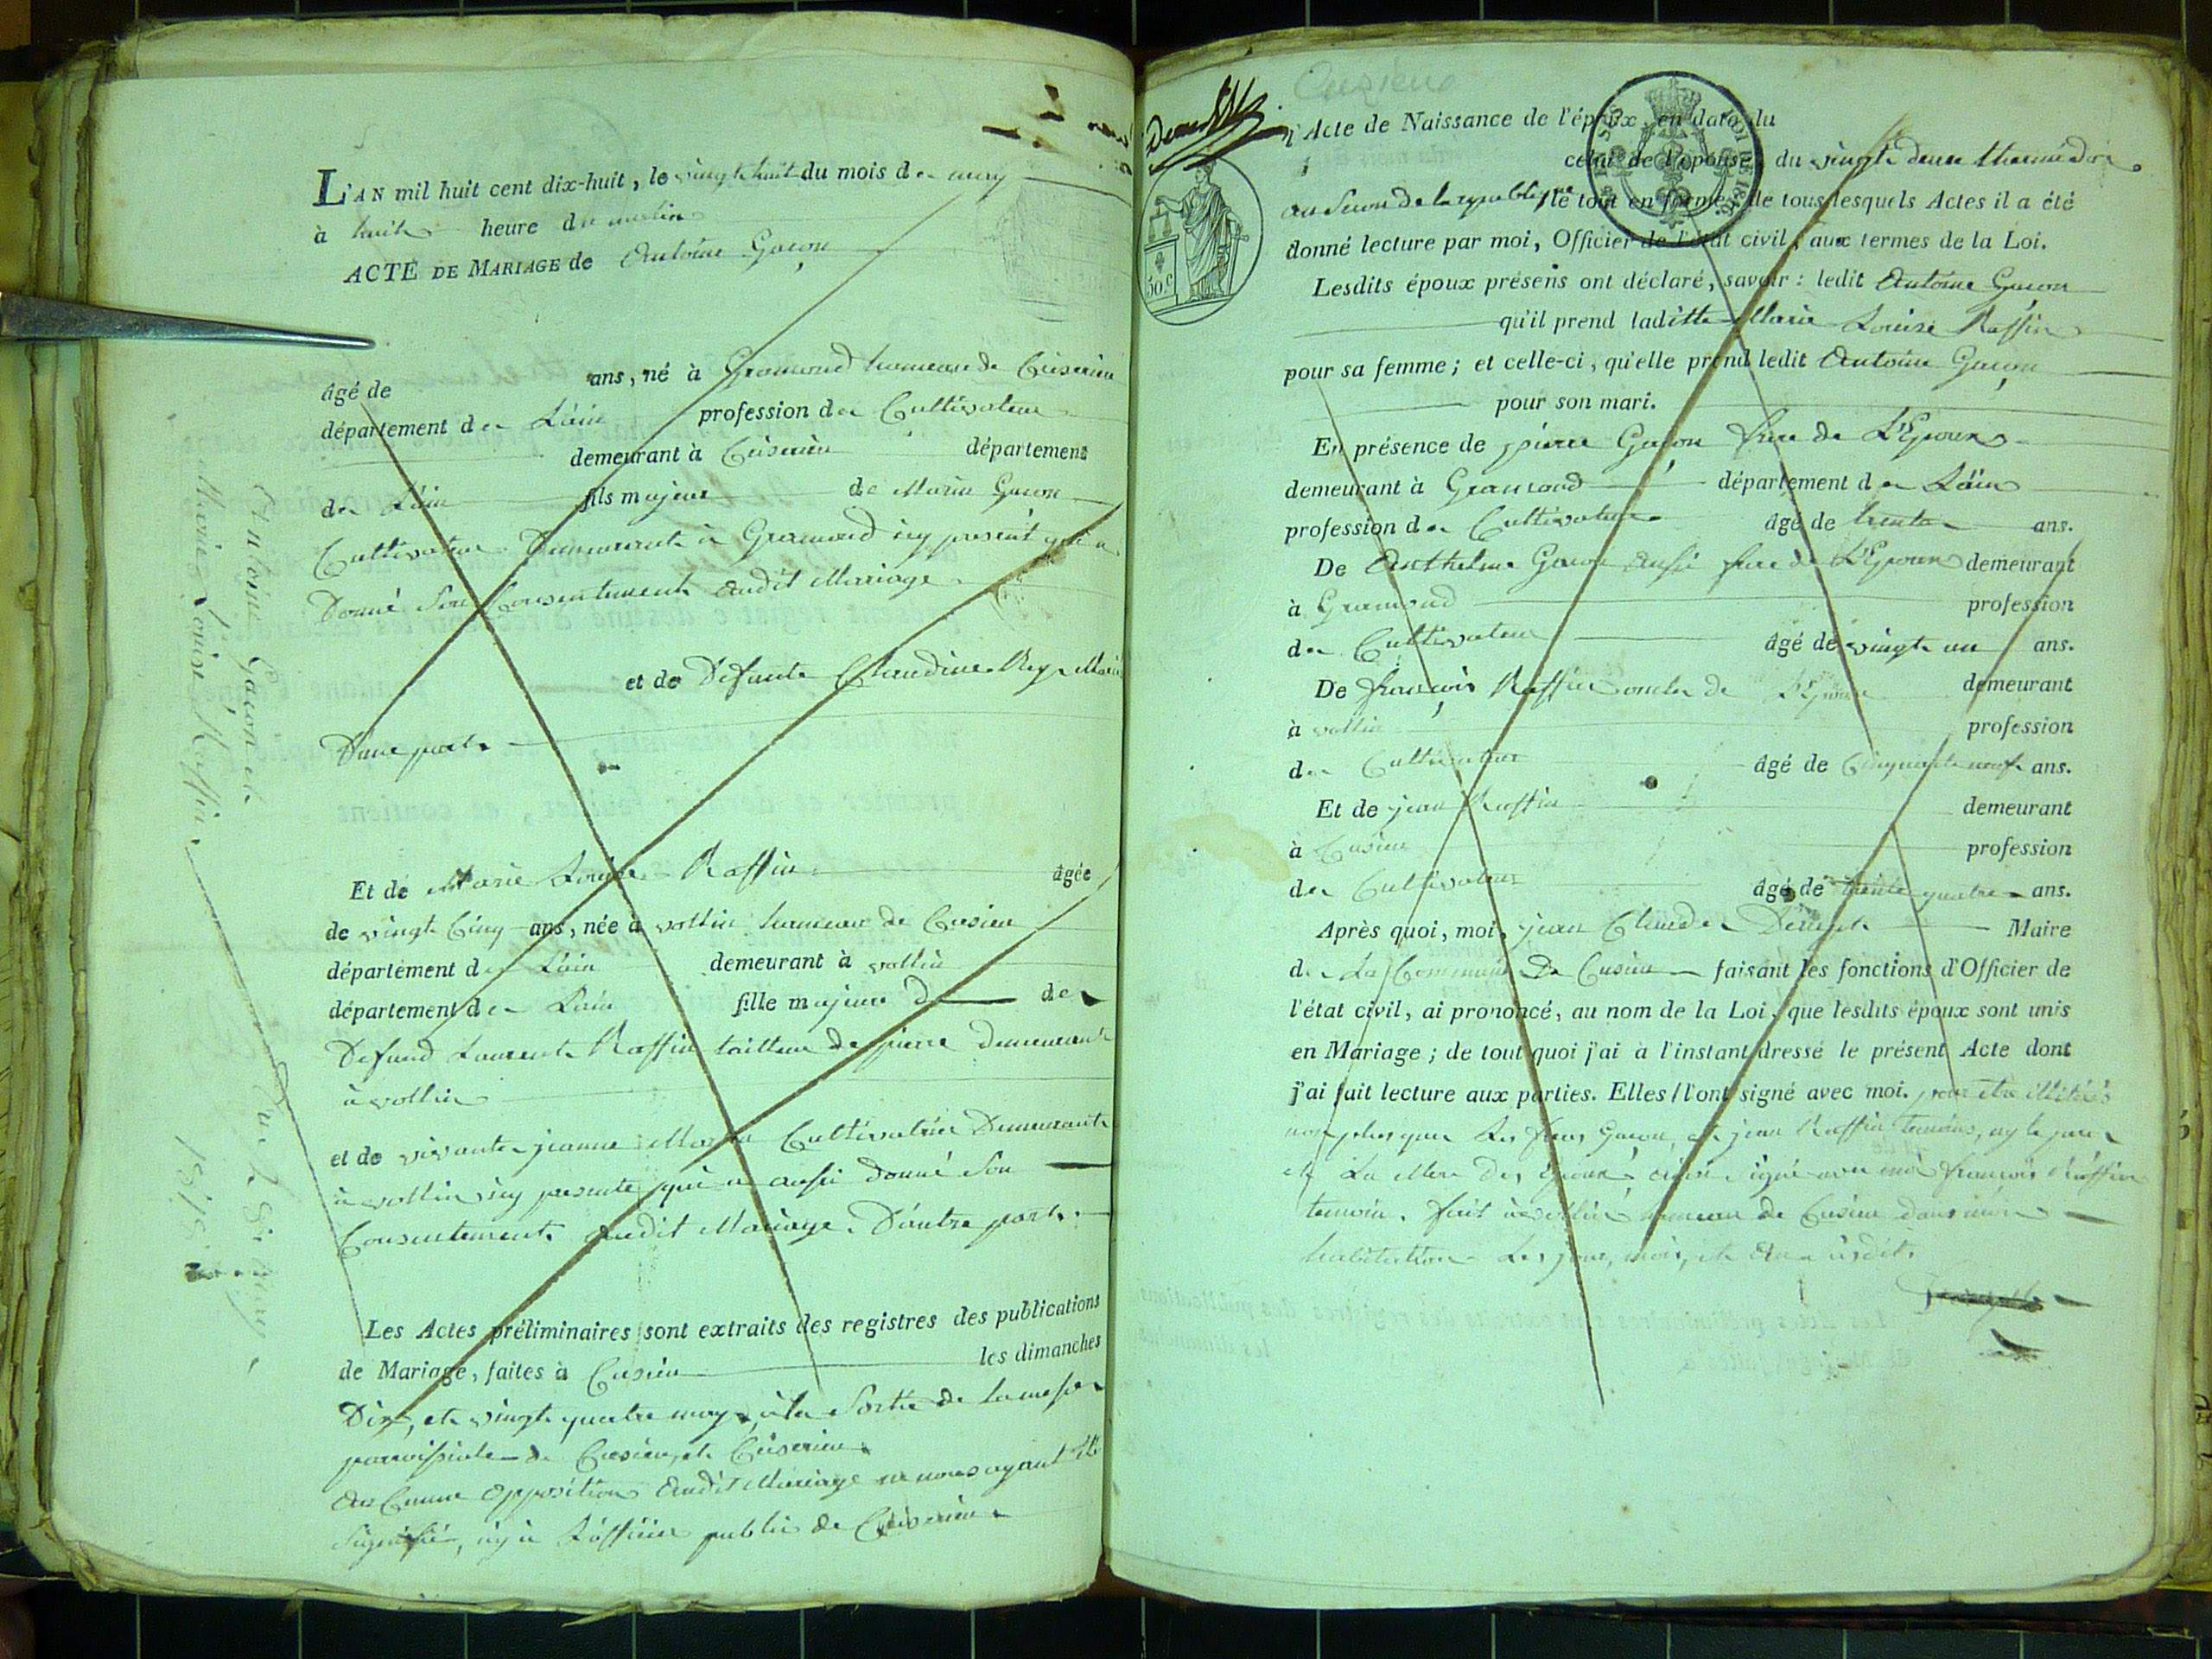 L'AN mil huit cent dix-huit, le vingt huit du mois de may
à huit heure du matin
ACTE DE MARIAGE de Antoine Gaçon
âgé de ans, né à Gramond hameau de Ceiserieu
département de L'ain profession de Cultivateur
demeurant à Ceiserieu département
de L'ain fils majeur de Marin Gacon
Cultivateur Demeurant à Gramond icy present qui a
Donné Son Consentement audit Mariage
et de Defunte Claudine Rey
D'une part.
Et de Marie Louise Raffin âgée
de vingt Cinq ans, née à vollin hameau de Cusieu
département de L'ain demeurant à vollin
département de L'ain fille majeure de
Defund Laurent Raffin tailleur de pierre Demeurant
à vollin
et de vivante jeanne Cultivatrice Demeurante
à vollin icy presente qui a aussi donné Son
Consentement audit Mariage. D'autre part.
Les Actes préliminaires sont extraits des registres des publications
de Mariage, faites à Cusieu les dimanches
Dix, et vingt quatre may, à la Sortie de la messe
paroissiale de Cusieu, et Ceiserieu
Aucunne opposition audit Mariage ne nous ayant été
Signifié, ny à L'officier public de Ceiserieu
Antoine Gaçon et
Marie Louise Raffin
Du 28
1818.
Cuzieu
l'Acte de Naissance de l'époux en date du
celui de l'épouse, du vingt deux thermidor
an Second de la republique le tout en formes, de tous lesquels Actes il a été
donné lecture par moi, Officier de l'état civil, aux termes de la Loi.
50 c
Lesdits époux présens ont déclaré, savoir : ledit Antoine Gacon
qu'il prend laditte Marie Louise Raffin
pour sa femme ; et celle-ci, qu'elle prend ledit Antoine Gaçon
pour son mari.
En présence de pierre Gaçon frere de L'Epoux
demeurant à Gramond département de L'ain
profession de Cultivateur âgé de trente ans.
De Anthelme Gacon aussi frere de L'Epoux demeurant
à Gramond profession
de Cultivateur âgé de vingt un ans.
De françois Raffin oncle de L'Epouse demeurant
à vollin profession
de Cultivateur âgé de Cinquante neuf ans.
Et de jean Raffin demeurant
à Cusieu profession
de Cultivateur âgé de trente quatre ans.
Après quoi, moi, jean Claude Maire
de La Commune De Cusieu faisant les fonctions d'Officier de
l'état civil, ai prononcé, au nom de la Loi, que lesdits époux sont unis
en Mariage ; de tout quoi j'ai à l'instant dressé le présent Acte dont
j'ai fait lecture aux parties. Elles l'ont signé avec moi. pour etre illitérés
non plus que Les freres Gacon, et jean Raffin temoins, ny le pere
et La Mere Des Epoux, avec moi françois Raffin
temoin. fait à vollin hameau de Cusieu dans
habitation Les jour, mois, et An susdits.